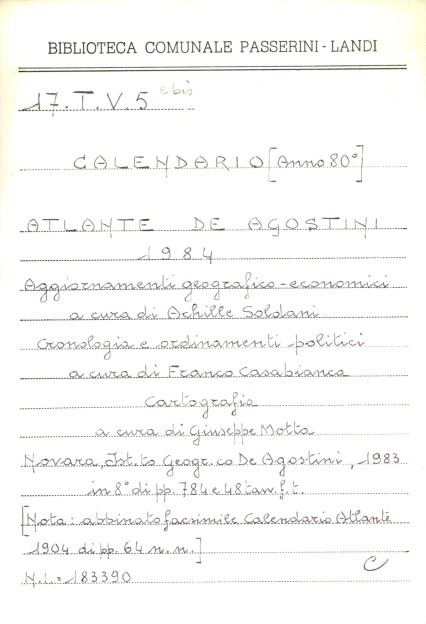 BIBLIOTECA COMUNALE PASSERINI - LANDI
17. T. V. 5 e bis
CALENDARIO [Anno 80°]
ATLANTE DE AGOSTINI
1984
Aggiornamenti geografico - economici
a cura di Achille Soldani
Cronologia e ordinamenti politici
a cura di Franco Casabianca
Cartografia
a cura di Giuseppe Motta
Novara, Ist.to Geogr.co De Agostini, 1983
in 8° di pp. 784 e 48 tav. f. t.
[Nota: abbinato facsimile Calendario Atlante
1904 di pp. 64 n. n.]
C
N. i. = 183390